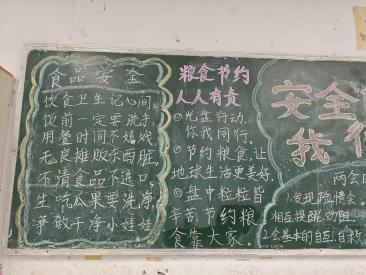 食品安全
饮食卫生记心间,
饭前一定要洗手,
用餐时间不嬉戏
无良摊贩东西脏,
不清食品不进口,
生吃瓜果要洗净
争做干净小娃娃
粮食节约
人人有责
①光盘行动,
你我同行.
②节约粮食,让
地球生活更美好.
③盘中粒粒皆
辛苦节约粮
食靠大家.
安全
我
两会
1.发现险情会
相互提醒、劝阻
2.会基本的自互、自救